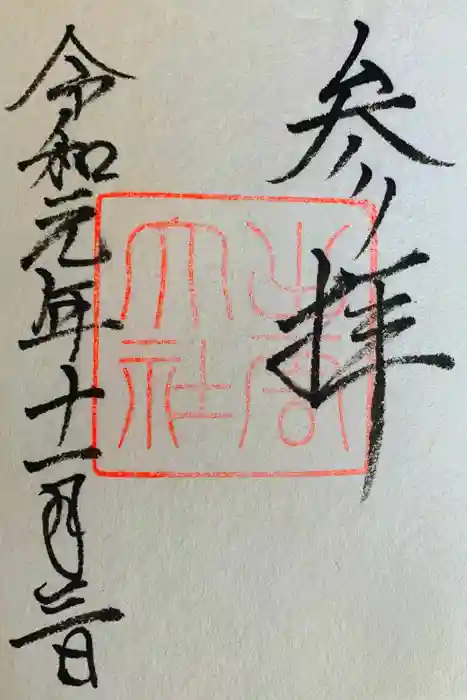 参拝
出雲
大社
令和元年十一月三日